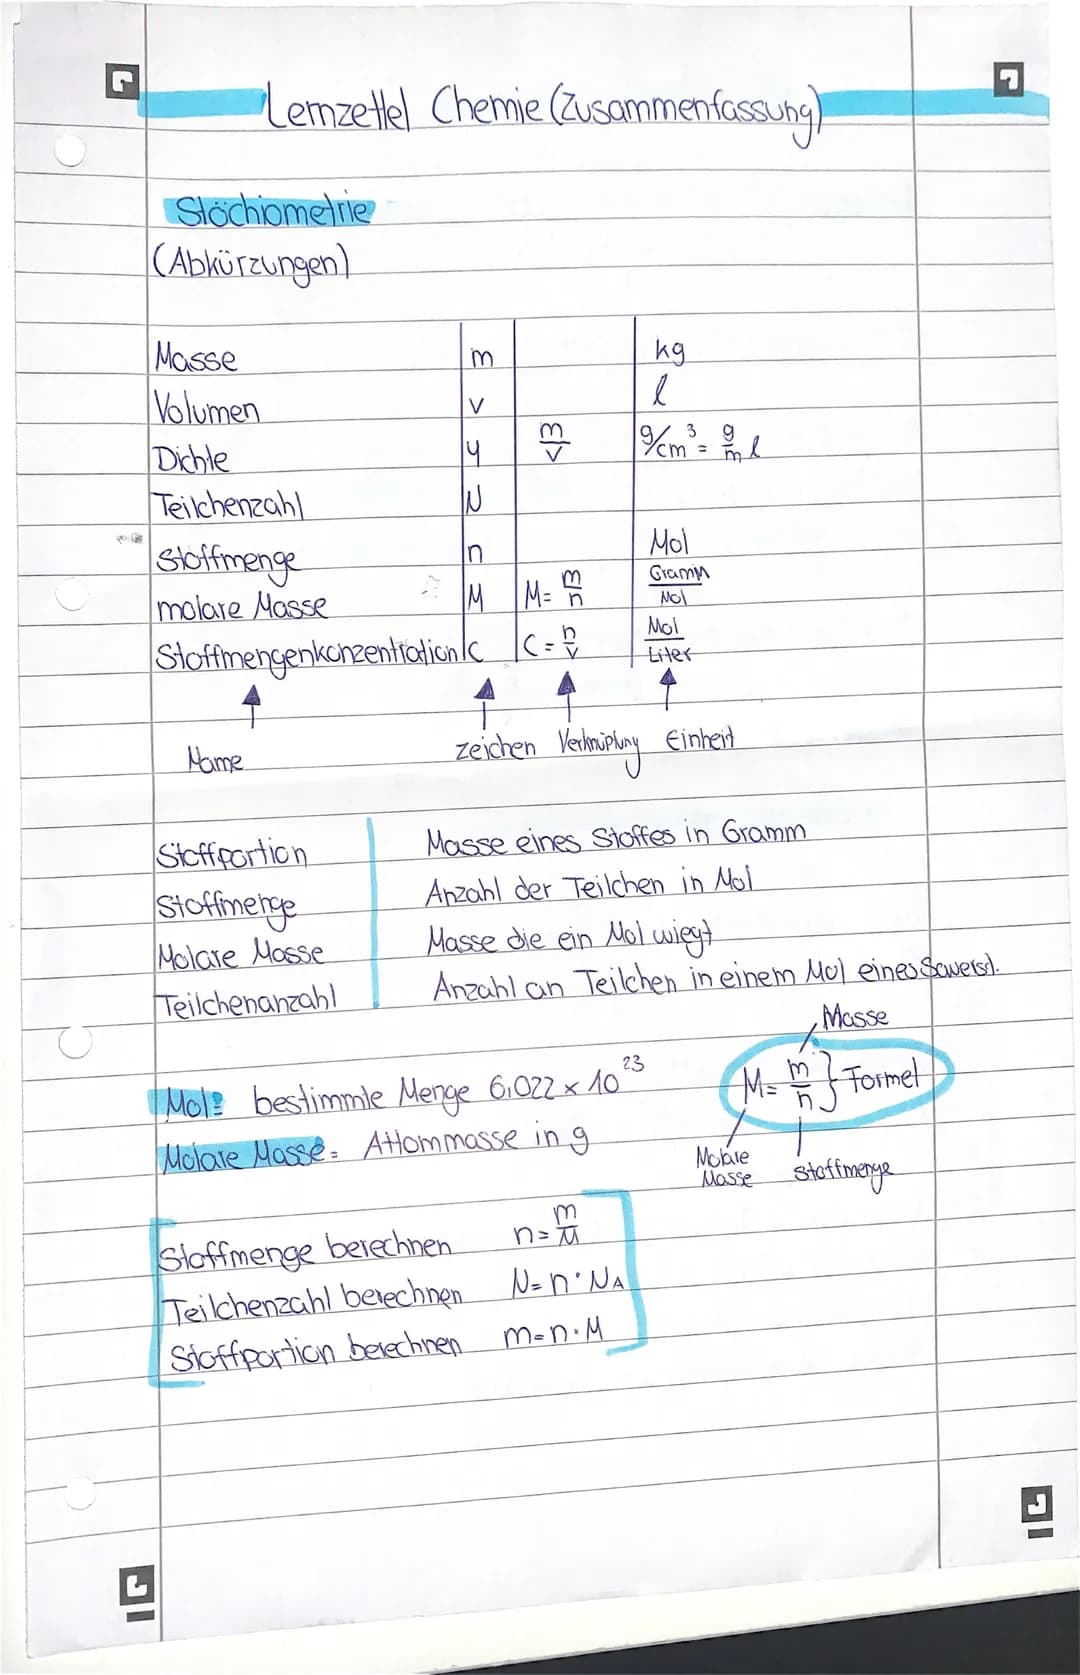 Lernzettel Chemie (Zusammenfassung)
Stöchiometrie
(Abkürzungen)
Masse m kg
Volumen v l
Dichte y m/v g/cm³ = g/ml
Teilchenzahl N
Stoffmenge n Mol
molare Masse M M = m/n Gramm/Mol
Stoffmengenkonzentration c C = n/v Mol/Liter
Name zeichen Verknüpfung Einheit
Stoffportion Masse eines Stoffes in Gramm
Stoffmenge Anzahl der Teilchen in Mol
Molare Masse Masse die ein Mol wiegt
Teilchenanzahl Anzahl an Teilchen in einem Mol eines
Masse
Mol: bestimmte Menge 6,022 × 10²³ M = m/n } Formel
Molare Masse = Attommasse in g
Molare Masse Stoffmenge
Stoffmenge berechnen n = m/M
Teilchenzahl berechnen N = n · NA
Stoffportion berechnen m = n · M